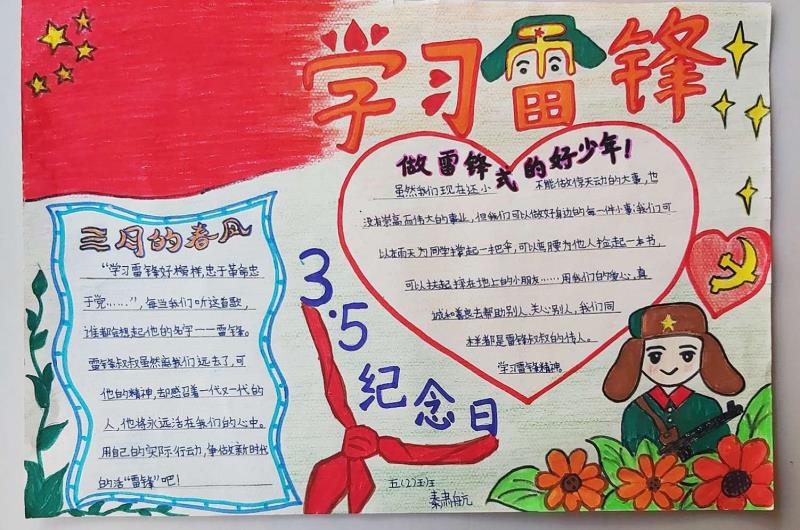 学习雷锋
做雷锋式的好少年！
虽然我们现在还小 不能做惊天动的大事，也
没有崇高而伟大的事业，但我们可以做好身边的每一件小事；我们可
以在雨天为同学撑起一把伞，可以弯腰为他人捡起一本书，
可以扶起摔在地上的小朋友……用我们的爱心，真
诚和善意去帮助别人，关心别人，我们同
样都是雷锋叔叔的传人。
学习雷锋精神。
三月的春风
“学习雷锋好榜样，忠于革命忠
于党……”，每当我们听这首歌，
谁都会想起他的名字——雷锋。
雷锋叔叔虽然离我们远去了，可
他的精神，却感召着一代又一代的
人，他将永远活在我们的心中。
用自己的实际行动，争做新时代
的活“雷锋”吧！
3.5
纪念日
五(2)班
秦肃航